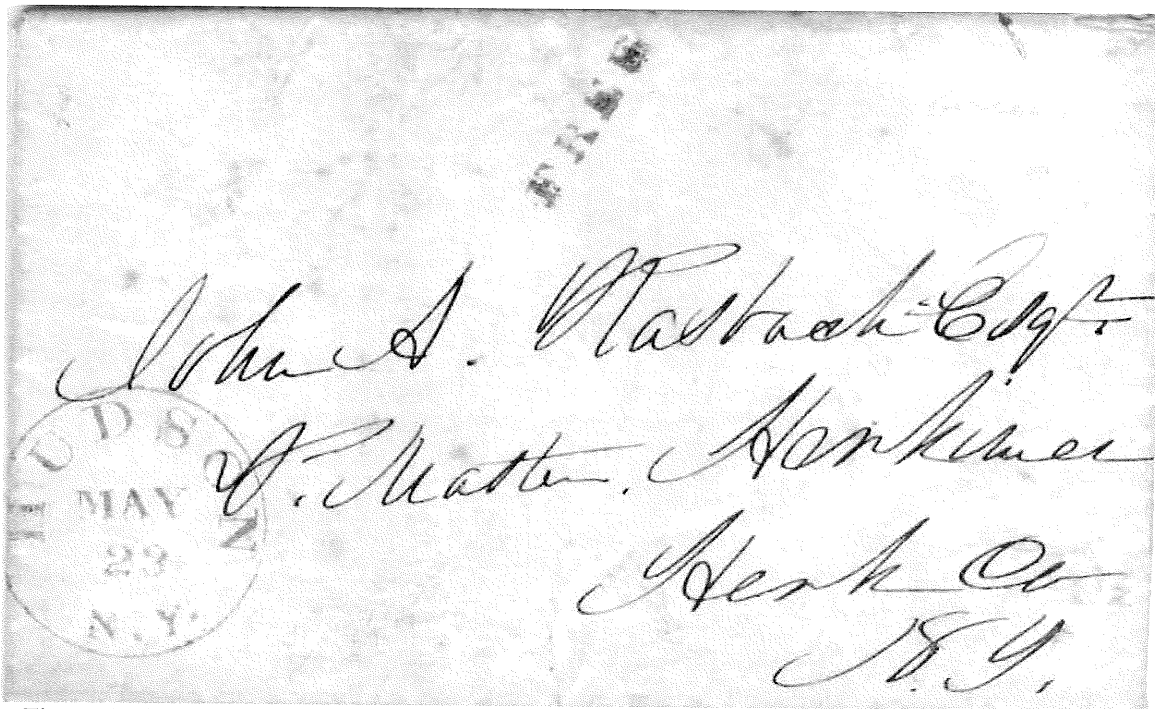 FREE
John A. Rasbach Esqr.
P. Master. Herkimer
Herk Co
N.Y.
HUDSON
MAY
23
N.Y.